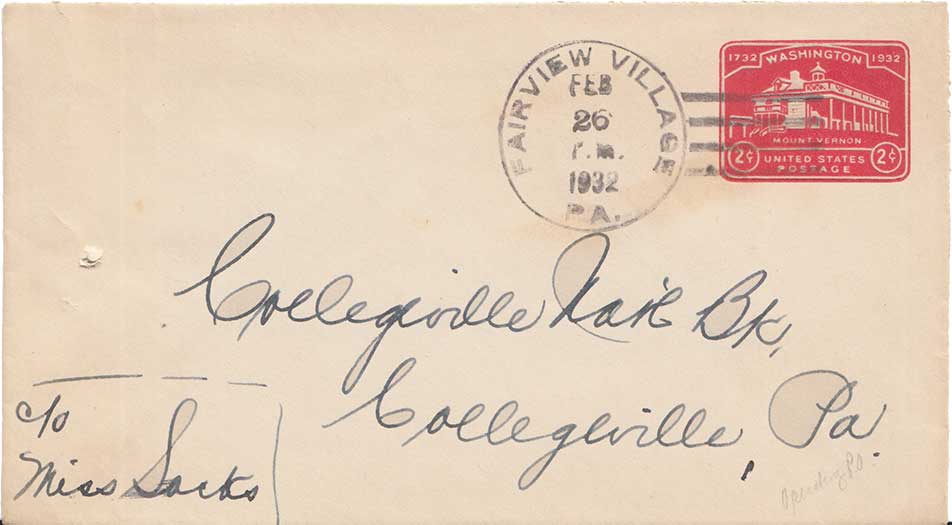 FAIRVIEW VILLAGE
FEB
26
P.M.
1932
PA.
1732 WASHINGTON 1932
MOUNT VERNON
2¢ UNITED STATES 2¢
POSTAGE
Collegeville Nat'l Bk,
Collegeville, Pa.
c/o
Miss Sacks